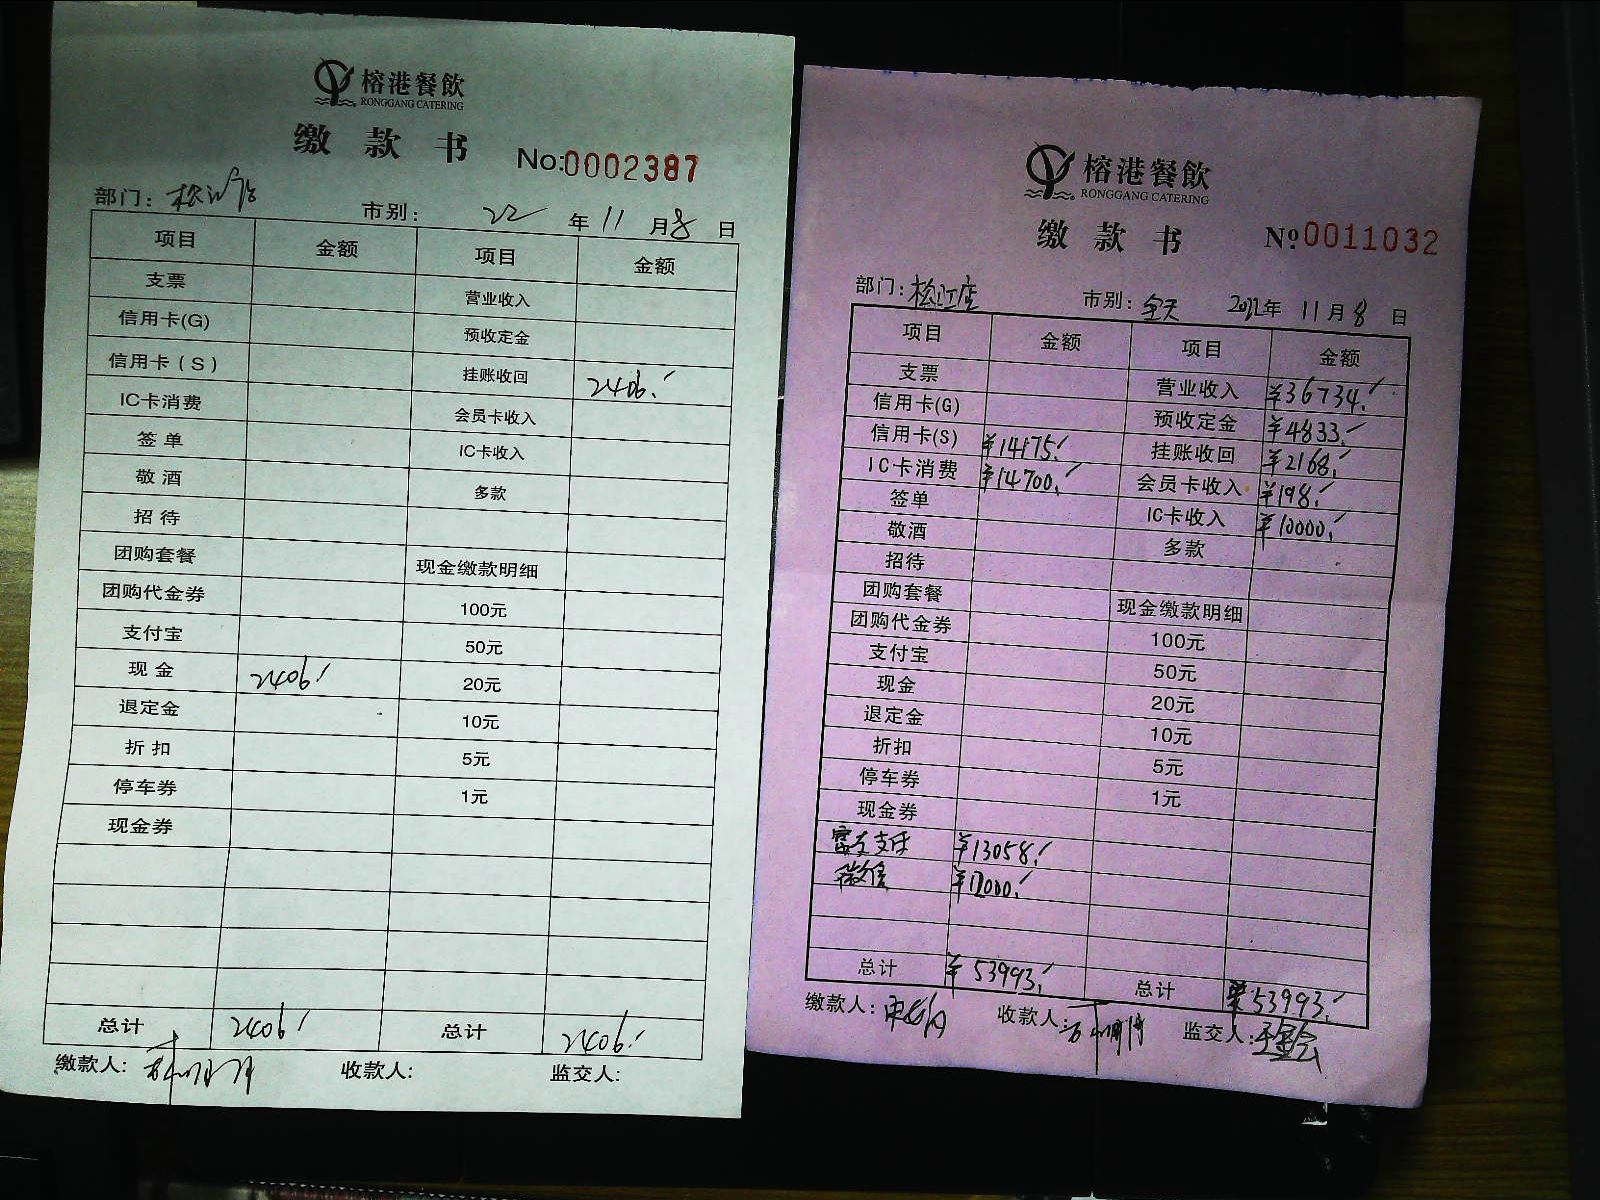 榕港餐飲
RONGGANG CATERING
缴款书 No:0002387
部门: 松江店 市别: 22年11月8日
项目 金额 项目 金额
支票 营业收入
信用卡(G) 预收定金
信用卡(S) 挂账收回 2406.
IC卡消费 会员卡收入
签单 IC卡收入
敬酒 多款
招待
团购套餐 现金缴款明细
团购代金券 100元
支付宝 50元
现金 2406 20元
退定金 10元
折扣 5元
停车券 1元
现金券
总计 2406 总计 2406.
缴款人: 收款人: 监交人:
榕港餐飲
RONGGANG CATERING
缴款书 No 0011032
部门: 松江店 市别: 全天 2022年11月8日
项目 金额 项目 金额
支票 营业收入 ¥36734.
信用卡(G) 预收定金 ¥4833.
信用卡(S) ¥14175. 挂账收回 ¥2168.
IC卡消费 ¥14700. 会员卡收入 ¥198.
签单 IC卡收入 ¥10000.
敬酒 多款
招待
团购套餐 现金缴款明细
团购代金券 100元
支付宝 50元
现金 20元
退定金 10元
折扣 5元
停车券 1元
现金券
富友支付 ¥13058.
微信 ¥12000.
总计 ¥53933. 总计 ¥53933.
缴款人: 收款人: 监交人: